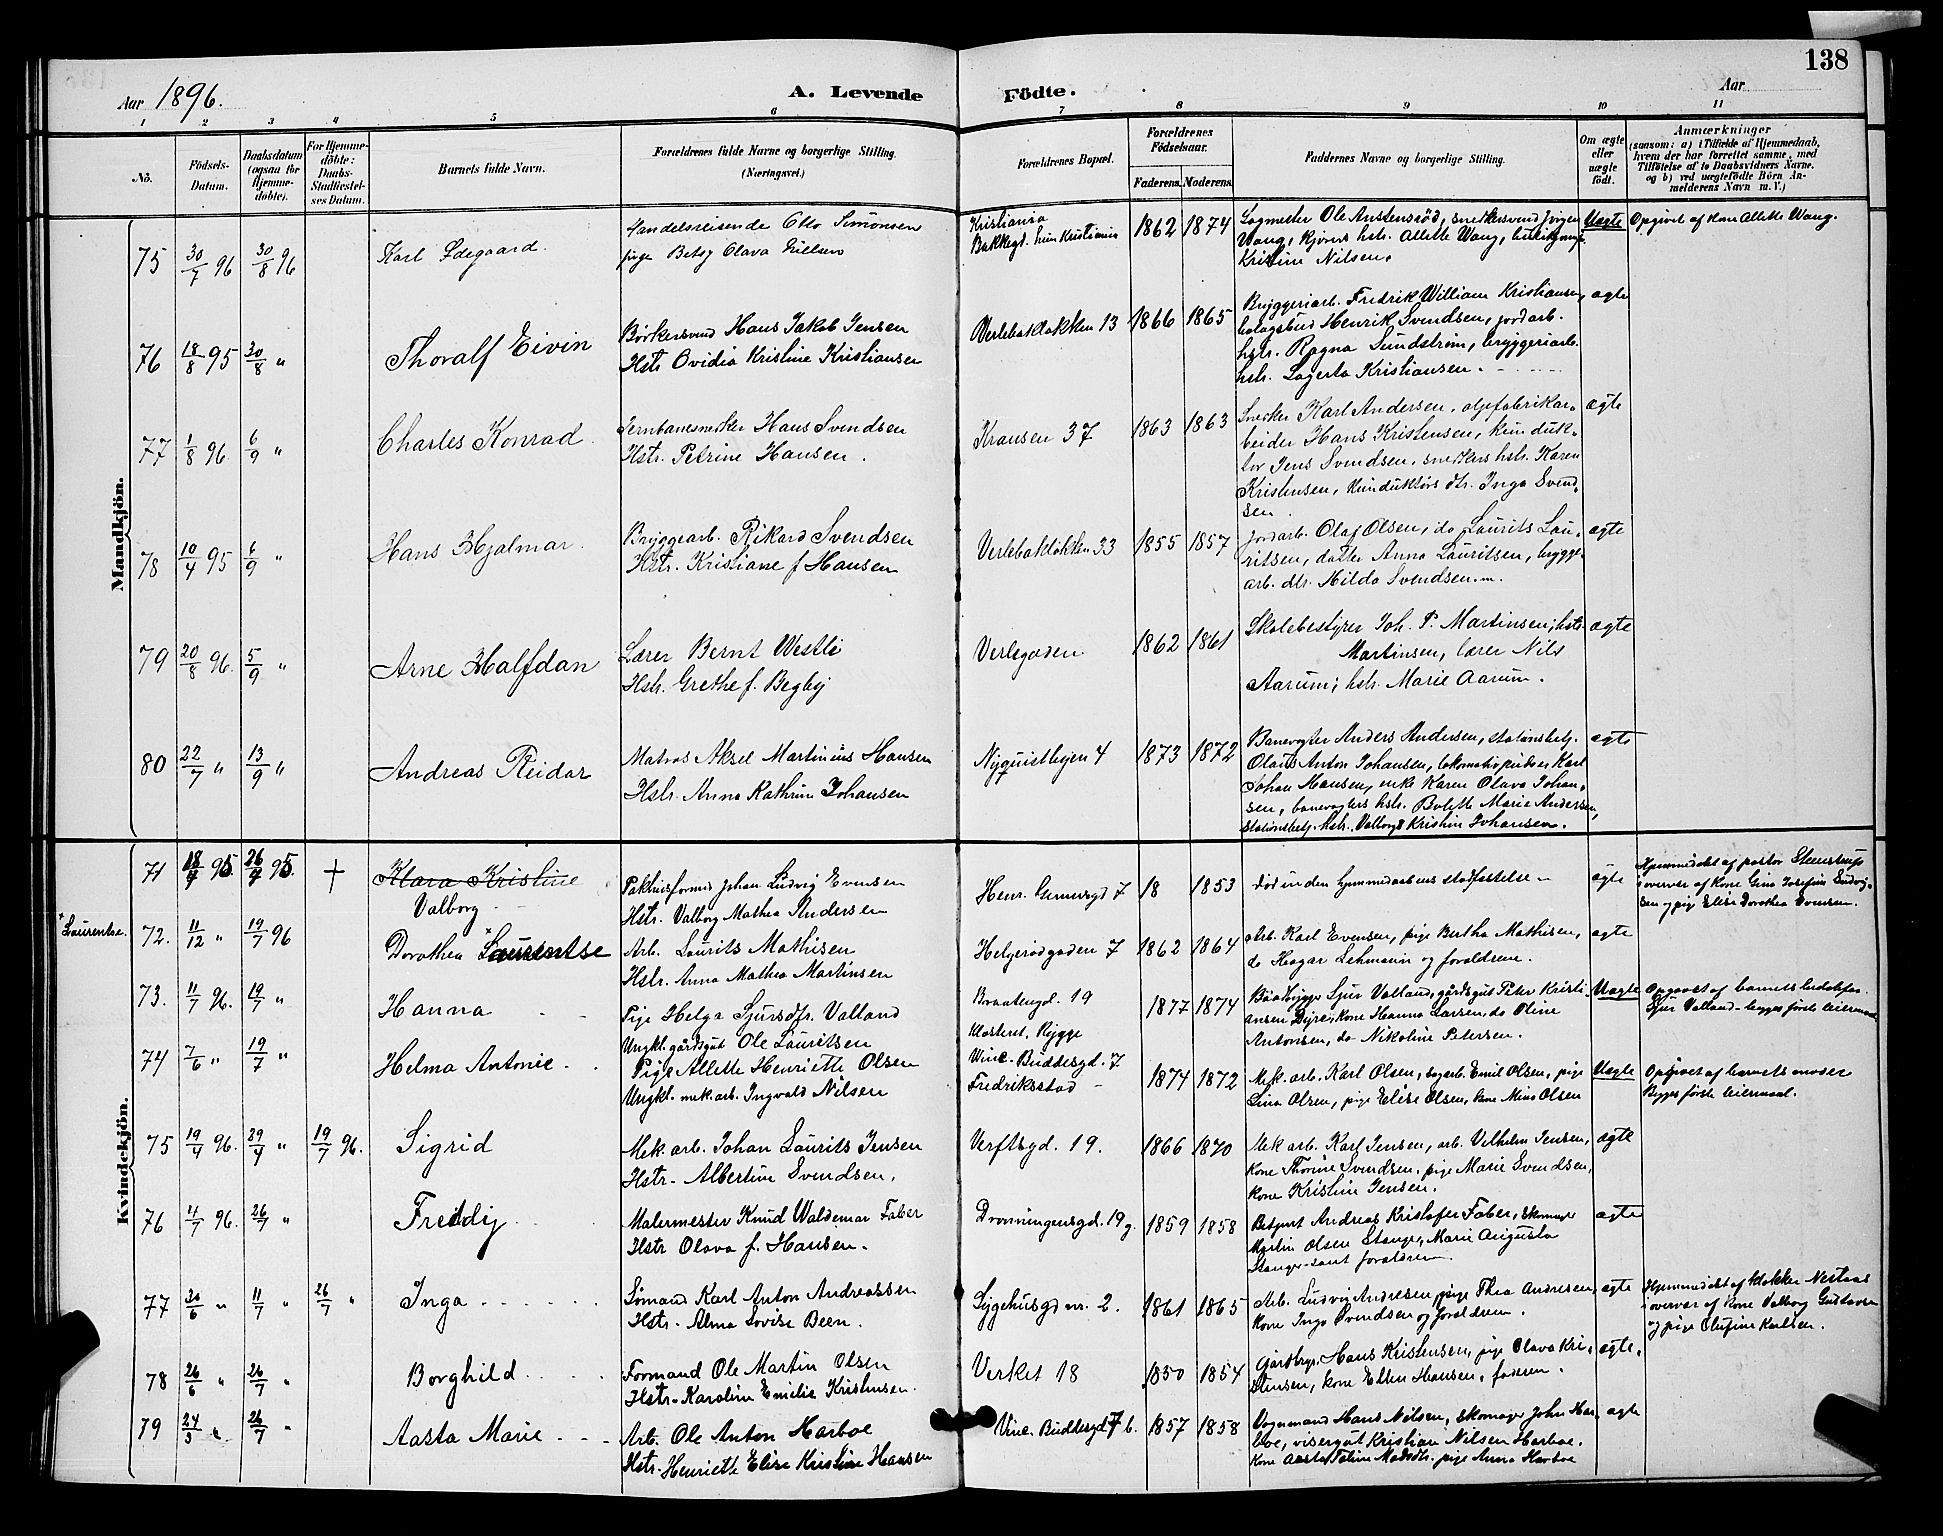 138
Aar 1896.
A. Levende Fødte.
Aar
1 2 3 4 5 6 7 8 9 10 11
No.
Födsels-Datum.
Daabsdatum (ogsaa for Hjemme-döbte).
For Hjemme-döbte: Daabs-Stadfæstel-ses Datum.
Barnets fulde Navn.
Forældrenes fulde Navne og borgerlige Stilling.
(Næringsvei.)
Forældrenes Bopæl.
Forældrenes Födselsaar.
Faderens. Moderens.
Faddernes Navne og borgerlige Stilling.
Om ægte eller uægte födt.
Anmærkninger
(saasom: a) i Tilfælde af Hjemmedaab, hvem der har forrettet samme, med Tilföielse af to Daabsvidners Navne. og b) ved uægtefödte Börn An-melderens Navn m. V.)
Mandkjön.
75 30/7 96 30/8 96 Karl Ødegaard.
Handelsreisende Otto Simonsen
pige Betsy Olava Nielsen
Kristiania
Bakkegd. hun Kristiania
1862 1874
Sagmester Ole Austensröd, snedkersvend Jörgen
Wang, kjörers hstr. Allette Wang,
Kristine Nilsen.
Uægte
Opgivet af Kone Allette Wang.
76 18/8 95 30/8 " Thoralf Eivin
Børkersvend Hans Jakob Jensen
Hstr Ovidia Kristine Kristiansen
Verlebakløkken 13 1866 1865
Bryggeriarb. Fredrik William Kristiansen,
bolagsbud Henrik Svendsen, jordarb.
hstr. Ragna Sundström, bryggeriarb.
hstr. Lagerta Kristiansen.
ægte
77 1/8 96 6/9 " Charles Konrad.
Jernbanesnekker Hans Svendsen
Hstr. Petrine Hansen.
Kransen 37 1863 1863
Snekker Karl Andersen, oljefabrikar-
beider Hans Kristensen, kunduk-
tor Jens Svendsen, snedkers hstr. Karen
Kristensen, kunduktörs dtr. Inga Svend-
sen.
ægte
78 10/4 95 6/9 " Hans Hjalmar.
Bryggearb. Rikard Svendsen
Hstr. Kristiane f Hansen
Verlebakløkken 33 1855 1857
Jordarb. Olaf Olsen, do Laurits Lau-
ritsen, datter Anna Lauritsen, brygge-
arb. dtr. Hilda Svendsen.
ægte
79 20/8 96. 5/9 " Arne Halfdan
Lærer Bernt Westli
Hstr. Grethe f. Begby
Verlegaden 1862 1861
Skolebestyrer Joh. P. Martinsen, hstr.
Martinsen, lærer Nils
Aarum; hstr. Marie Aarum.
ægte
80 22/7 " 13/9 " Andreas Reidar
Matros Aksel Martinius Hansen
Hstr. Anna Kathrine Johansen
Nyquistbyen 4 1873 1872
Banevogter Anders Andersen, stationsbetj.
Olaus Anton Johansen, lokomotivpudser Karl
Johan Hansen, enke Karen Olava Johan-
sen, banevogters hstr. Bolette Marie Andersen,
stationsbetj. hstr. Valborg Kristine Johansen.
ægte
Kvindekjön.
71 95. 95. + Klara Kristine
Valborg
Pakhusformd Johan Ludvig Evensen
Hstr. Valborg Mathea Andersen
Henr. Gernersgd 7 18 1853
död inden hjemmedaabens stadfæstelse
ægte
Hjemmedöbt af pastor Steenstrup
i overvær af Kone Gina Josefine Ludvig-
sen og pige Elise Dorothea Evensen.
+ Laurentse.
72. 11/12 " 19/7 96 Dorothea + Laurentse
Arb. Laurits Mathisen
Hstr. Anna Mathea Martinsen
Helgerödgaden 7 1862 1864
Arb. Karl Evensen, pige Bertha Mathisen,
do Hagar Lehmann og forældrene.
ægte
73. 11/7 96. 19/7 " Hanna
Pige Helga Sjursdtr. Valland
Ungkl. gårdsgut Ole Lauritsen
Braatengd. 19
Klosteret, Rygge
1877 1874
Sjur Valland, gårdsgut Peter Kristi-
ansen Dyre, kone Hanna Larsen, do Oline
Antonsen, do Nikoline Petersen.
Uægte
Opgivet af barnets bedstefar
Sjur Valland. begges förste leiermaal
74 7/6 " 19/7 " Helma Antonie
Pige Allette Henriette Olsen
Ungkl. mek. arb. Ingvald Nilsen
Vinc. Buddesgd. 7
Fredriksstad
1874 1872
Mek. arb. Karl Olsen, sagarb. Emil Olsen, pige
Lina Olsen, pige Elise Olsen, kone Mina Olsen
Uægte
Opgivet af barnets moder
Begges förste leiermaal.
75 19/4 96. 29/4 " 19/7 96. Sigrid
Mek. arb. Johan Laurits Jensen
Hstr. Albertine Svendsen.
Verftsgd. 19. 1866 1870
Mek arb. Karl Jensen, arb. Vilhelm Jensen,
kone Thorine Svendsen, pige Marie Svendsen,
kone Kristine Jensen.
ægte
76 4/7 96. 26/7 " Freddy
Malermester Knud Waldemar Faber
Hstr Olava f. Hansen.
Dronningensgd. 19 g. 1859 1858
Betjent Andreas Kristofer Faber, skomager
Martin Olsen Stange, Marie Augusta
Stange samt forældrene
ægte
77 20/6 " 11/7 " 26/7 " Inga
Sömand Karl Anton Andreassen
Hstr. Alma Lovise Been.
Sygehusgd nr. 2. 1861 1865
Arb. Ludvig Andresen, pige Thea Andresen,
kone Inga Svendsen og forældrene.
ægte
Hjemmedöbt af klokker Nestaas
i overvær af kone Valborg Gustavsen
og pige Olufine Karlsen.
78 26/6 " 26/7 " Borghild
Formand Ole Martin Olsen
Hstr. Karoline Emilie Kristensen.
Verket 18 1850 1854
Gårdbrgr. Hans Kristensen, pige Olava Kri-
stensen, kone Ellen Hansen, faderen.
ægte.
79 24/3 " 26/7 " Aasta Marie
Arb. Ole Anton Harboe
Hstr. Henriette Elise Kristine Hansen
Vinc. Buddesgd 7 b. 1857 1858
Vognmand Hans Nilsen, skomager John Har-
boe, visergut Kristian Nilsen Harboe,
kone Aasta Taline Madsdtr. pige Anna Harboe
ægte